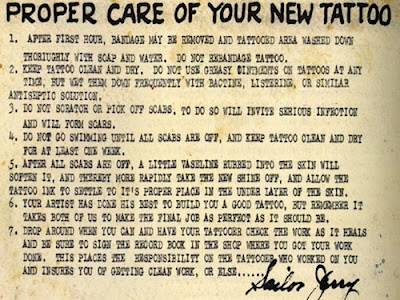 PROPER CARE OF YOUR NEW TATTOO
1. AFTER FIRST HOUR, BANDAGE MAY BE REMOVED AND TATTOOED AREA WASHED DOWN
THORIUGHLY WITH SOAP AND WATER. DO NOT REBANDAGE TATTOO.
2. KEEP TATTOO CLEAN AND DRY. DO NOT USE GREASY OINTMENTS ON TATTOOS AT ANY
TIME, BUT WET THEM DOWN FREQUENTLY WITH BACTINE, LISTERINE, OR SIMILAR
ANTISEPTIC SOLUTION.
3. DO NOT SCRATCH OR PICK OFF SCABS. TO DO SO WILL INVITE SERIOUS INFECTION
AND WILL FORM SCARS.
4. DO NOT GO SWIMMING UNTIL ALL SCABS ARE OFF, AND KEEP TATTOO CLEAN AND DRY
FOR AT LEAST ONE WEEK.
5. AFTER ALL SCABS ARE OFF, A LITTLE VASELINE RUBBED INTO THE SKIN WILL
SOFTEN IT, AND THEREBY MORE RAPIDLY TAKE THE NEW SHINE OFF, AND ALLOW THE
TATTOO INK TO SETTLE TO IT'S PROPER PLACE IN THE UNDER LAYER OF THE SKIN.
6. YOUR ARTIST HAS DONE HIS BEST TO BUILD YOU A GOOD TATTOO, BUT REMEMBER IT
TAKES BOTH OF US TO MAKE THE FINAL JOB AS PERFECT AS IT SHOULD BE.
7. DROP AROUND WHEN YOU CAN AND HAVE YOUR TATTOOER CHECK THE WORK AS IT HEALS
AND BE SURE TO SIGN THE RECORD BOOK IN THE SHOP WHERE YOU GOT YOUR WORK
DONE. THIS PLACES THE RESPONSIBILITY ON THE TATTOOER WHO WORKED ON YOU
AND INSURES YOU OF GETTING CLEAN WORK, OR ELSE......
Sailor Jerry